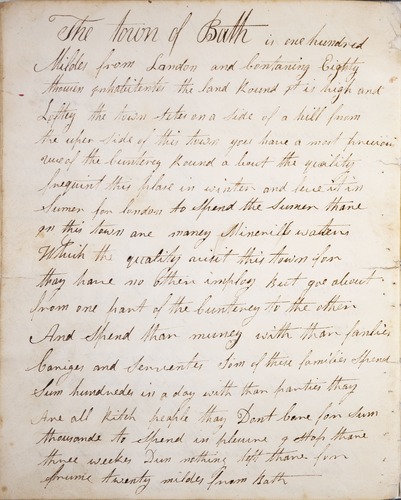 The town of Bath is one hundred
Mildes from Landon and Contaning Eighty
thowin inhabitentes the land Round it is high and
Loftey the town sites on a side of a hill from
the uper side of this town you have a most
vue of the Cunterey Round a bout the qualites
frequint this place in winter and leve it in
Sumer for london to spend the Sumer thare
on this town are maney Minerill waters
Which the quality visit this town for
thay have no other imploy But goe about
from one part of the Cunterey to the other
And Spend than muney with than families
Cariges and Servantes Som of these families Spend
Sum hundredes in a day with than parties thay
Are all Ritch people thay Dont Care for Sum
thousande to Spend in plesure I Stop thare
three weekes Dun nothing left thare for
twenty mildes from Bath